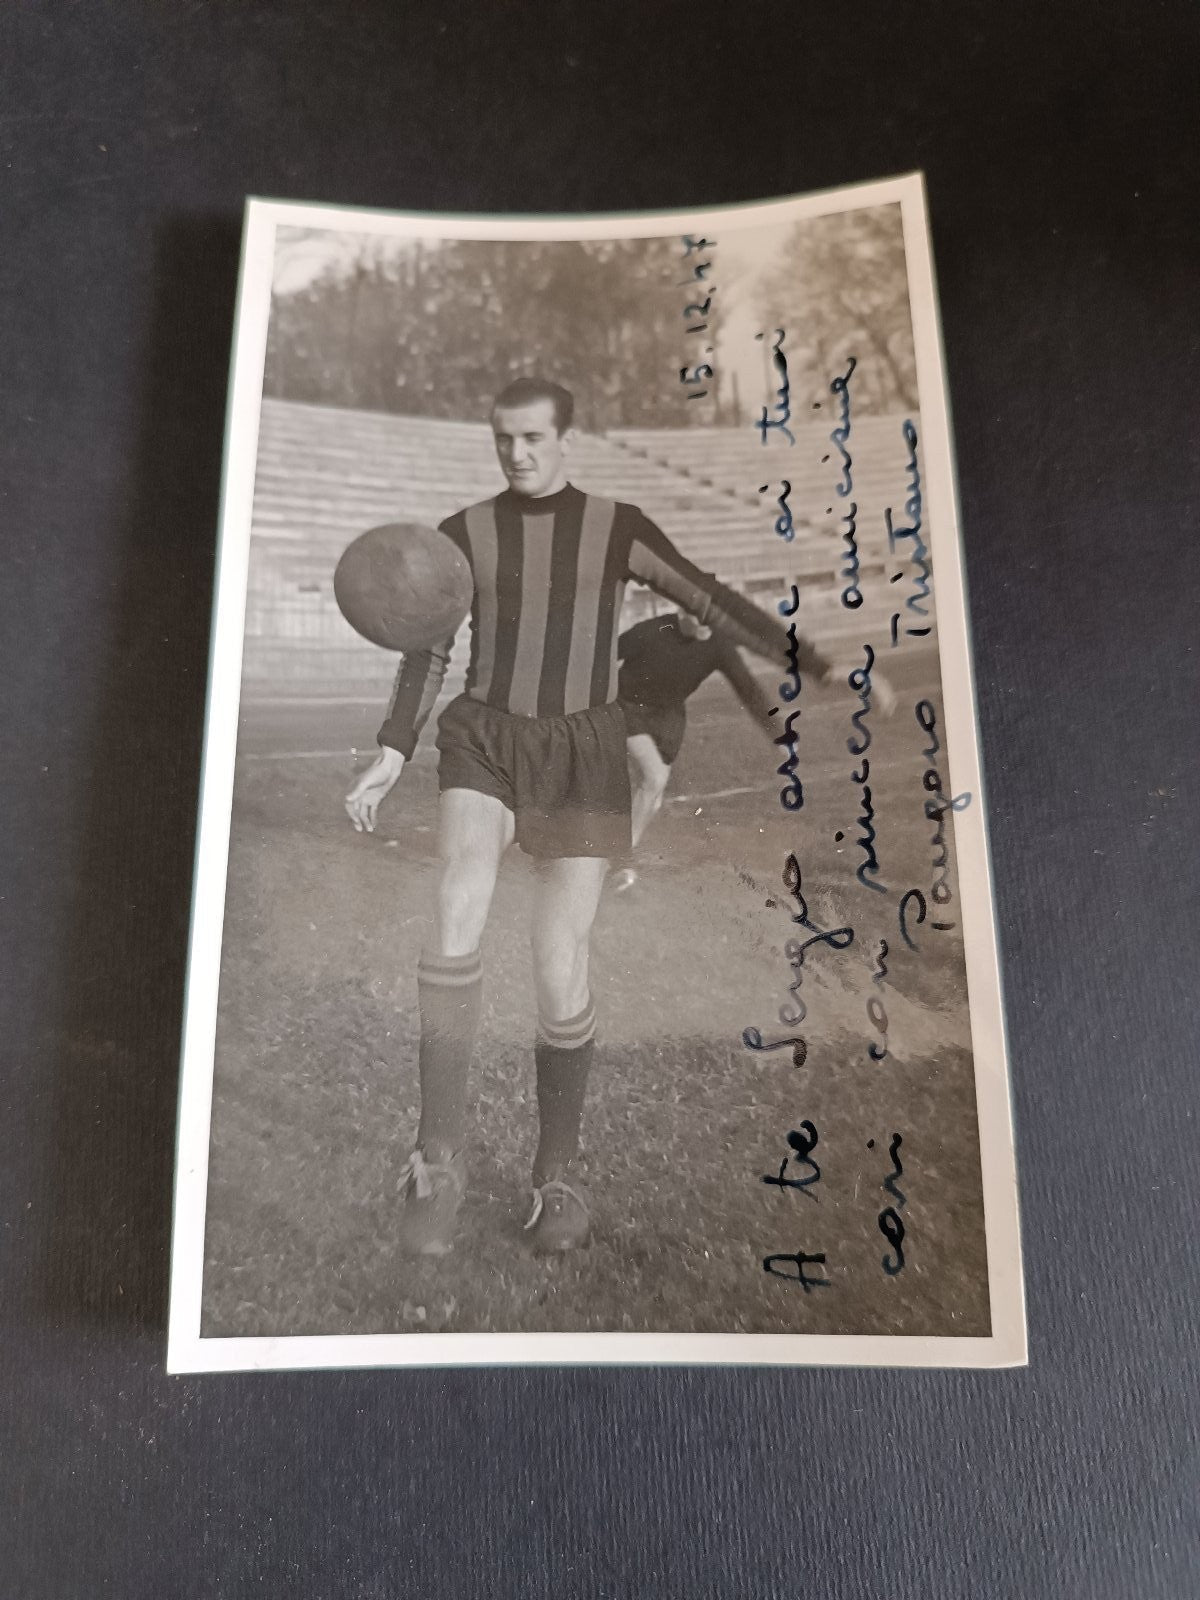 15.12.47
A te Sergio assieme ai tuoi
cari con sincera amicizia
Pangaro Tristano